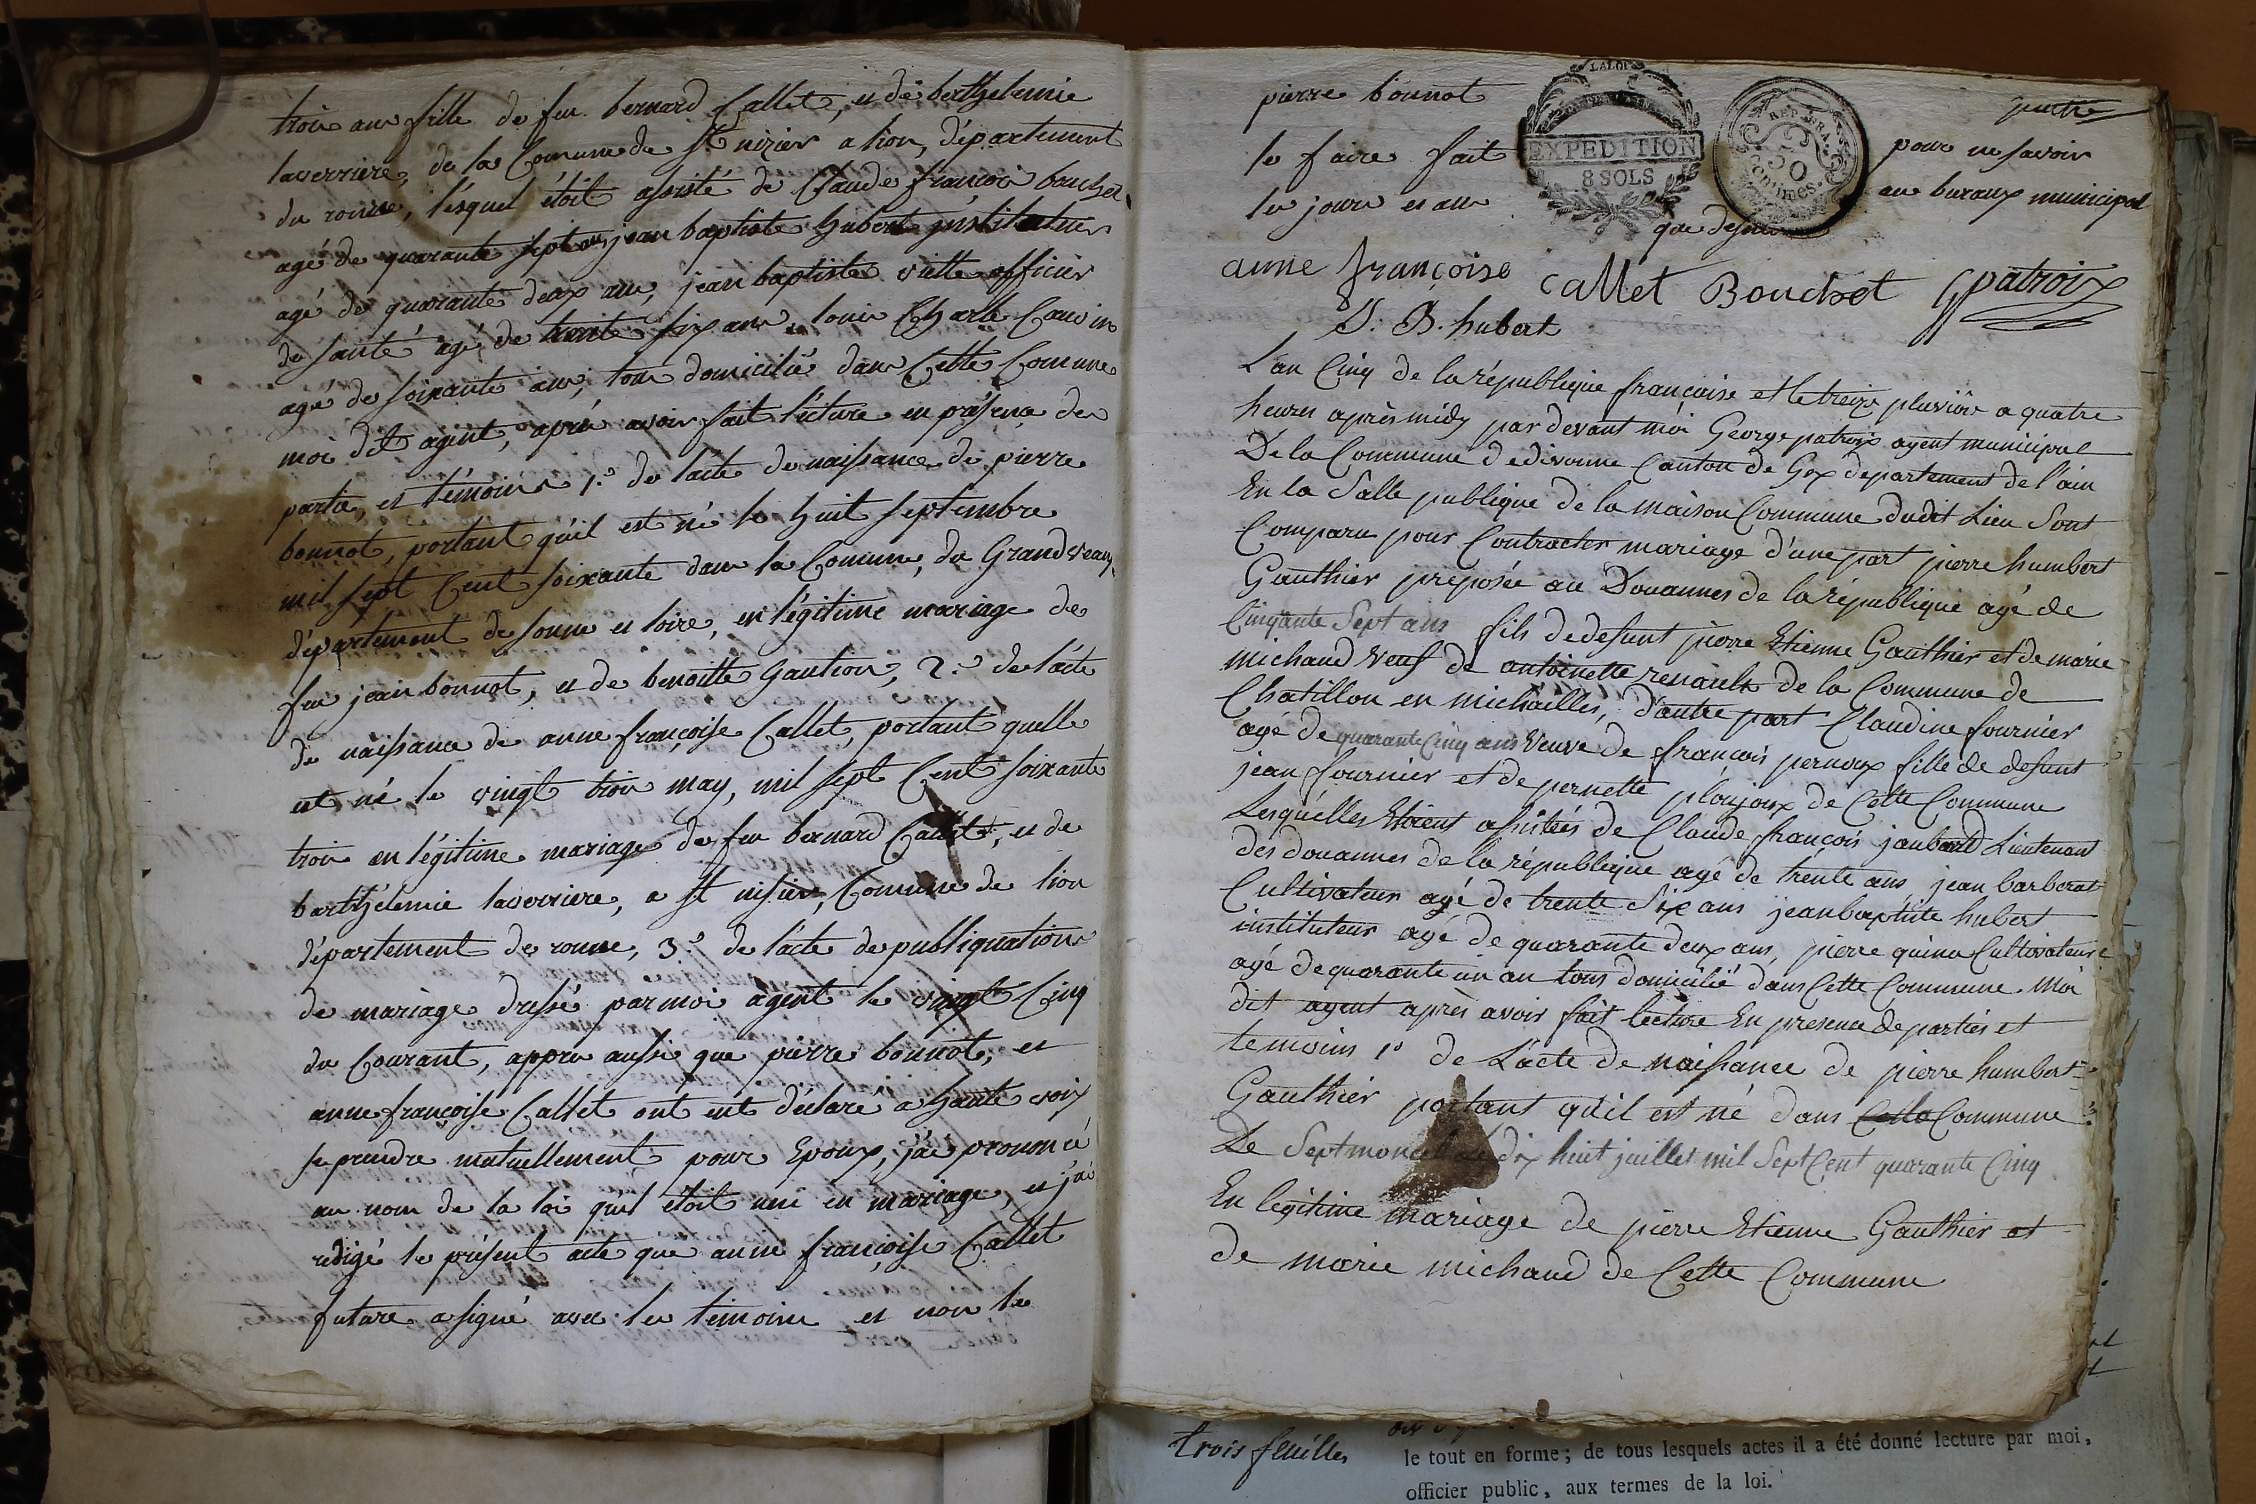 trois ans fille de feu bernard Callet, et de berthelemie
laverriere, de la Comune de St nizier a lion, département
du ronne, lesquel étoit assisté de Claude françois bouchet
agé de quarante sept ans jean baptiste hubert instituteur
agé de quarante deux ans, jean baptiste viette officier
de santé agé de trente six ans, louis Charle Cauvin
agé de soixante ans, tous domicilié dans Cette Comune
moi dit agent, après avoir fait lécture en présence des
partie, et témoins 1.º de lacte de naissance de pierre
bonnot, portant quil est né le huit septembre
mil sept Cent soixante dans la Comune, de Grandveaux
département de sonne et loire, en légitime mariage de
feu jean bonnot, et de benoitte Gaution, 2.º de lácte
de naissance de anne françoise Callet, portant quelle
est né le vingt trois may, mil sept Cent soixante
trois en légitime mariage de feu bernard Callet, et de
barthélemie laverriere, a st nisier, Comune de lion
département de ronne, 3.º de lácte de publiquations
de mariage dressé par moi agent le vingt Cinq
du Courant, appru aussi que pierre bonnot, et
anne françoise Callet ont eut déclaré a haute voix
se prendre mutuellement pour Epoux, j'ai prononcé
au nom de la loi quil étoit uni en mariage, et j'ai
redigé le présent acte que anne françoise Callet
future a signé avec les témoins et non le
pierre bonnot
pour ne savoir
le faire fait au buraux municipal
les jours et ans que dessus
LA LOI
EXPEDITION
8 SOLS
REP. FRA.
50
centimes.
anne françoise Callet Bouchet G patroix
J. B. hubert
L'an Cinq de la république française et le treize pluviôse a quatre
heures après midy par devant moi George patroix agent municipal
De la Commune de divonne Canton de Gex departement de l'ain
En la Salle publique de la maison Commune dudit Lieu Sont
Comparu pour Contracter mariage d'une part pierre humbert
Gauthier preposée au Douannes de la république agé de
Cinqante Sept ans fils de defunt pierre Etienne Gauthier et de marie
michaud Veuf de antoinette renault de la Commune de
Chatillon en michailles, d'autre part Claudine fournier
agé de quarante Cinq ans Veuve de françois pernoux fille de defunt
jean fournier et de pernette ploujoux de Cette Commune
Lesquélles Etoient assistées de Claude françois jaubard Lieutenant
des douannes de la république agé de trénte ans jean barberat
Cultivateur agé de trente Six ans jean baptiste hubert
instituteur agé de quarante deux ans, pierre quinu Cultivateur
agé de quarante un an tous domicilié dans Cette Commune. Moi
dit agent après avoir fait lecture En presence de parties et
temoins 1º de L'acte de naissance de pierre humbert
Gauthier portant qu'il est né dans Cette Commune
De Septmoncel le dix huit juillet mil Sept Cent quarante Cinq
En legitime mariage de pierre Etienne Gauthier et
de marie michaud de Cette Commune
trois feuilles
le tout en forme ; de tous lesquels actes il a été donné lecture par moi,
officier public, aux termes de la loi.